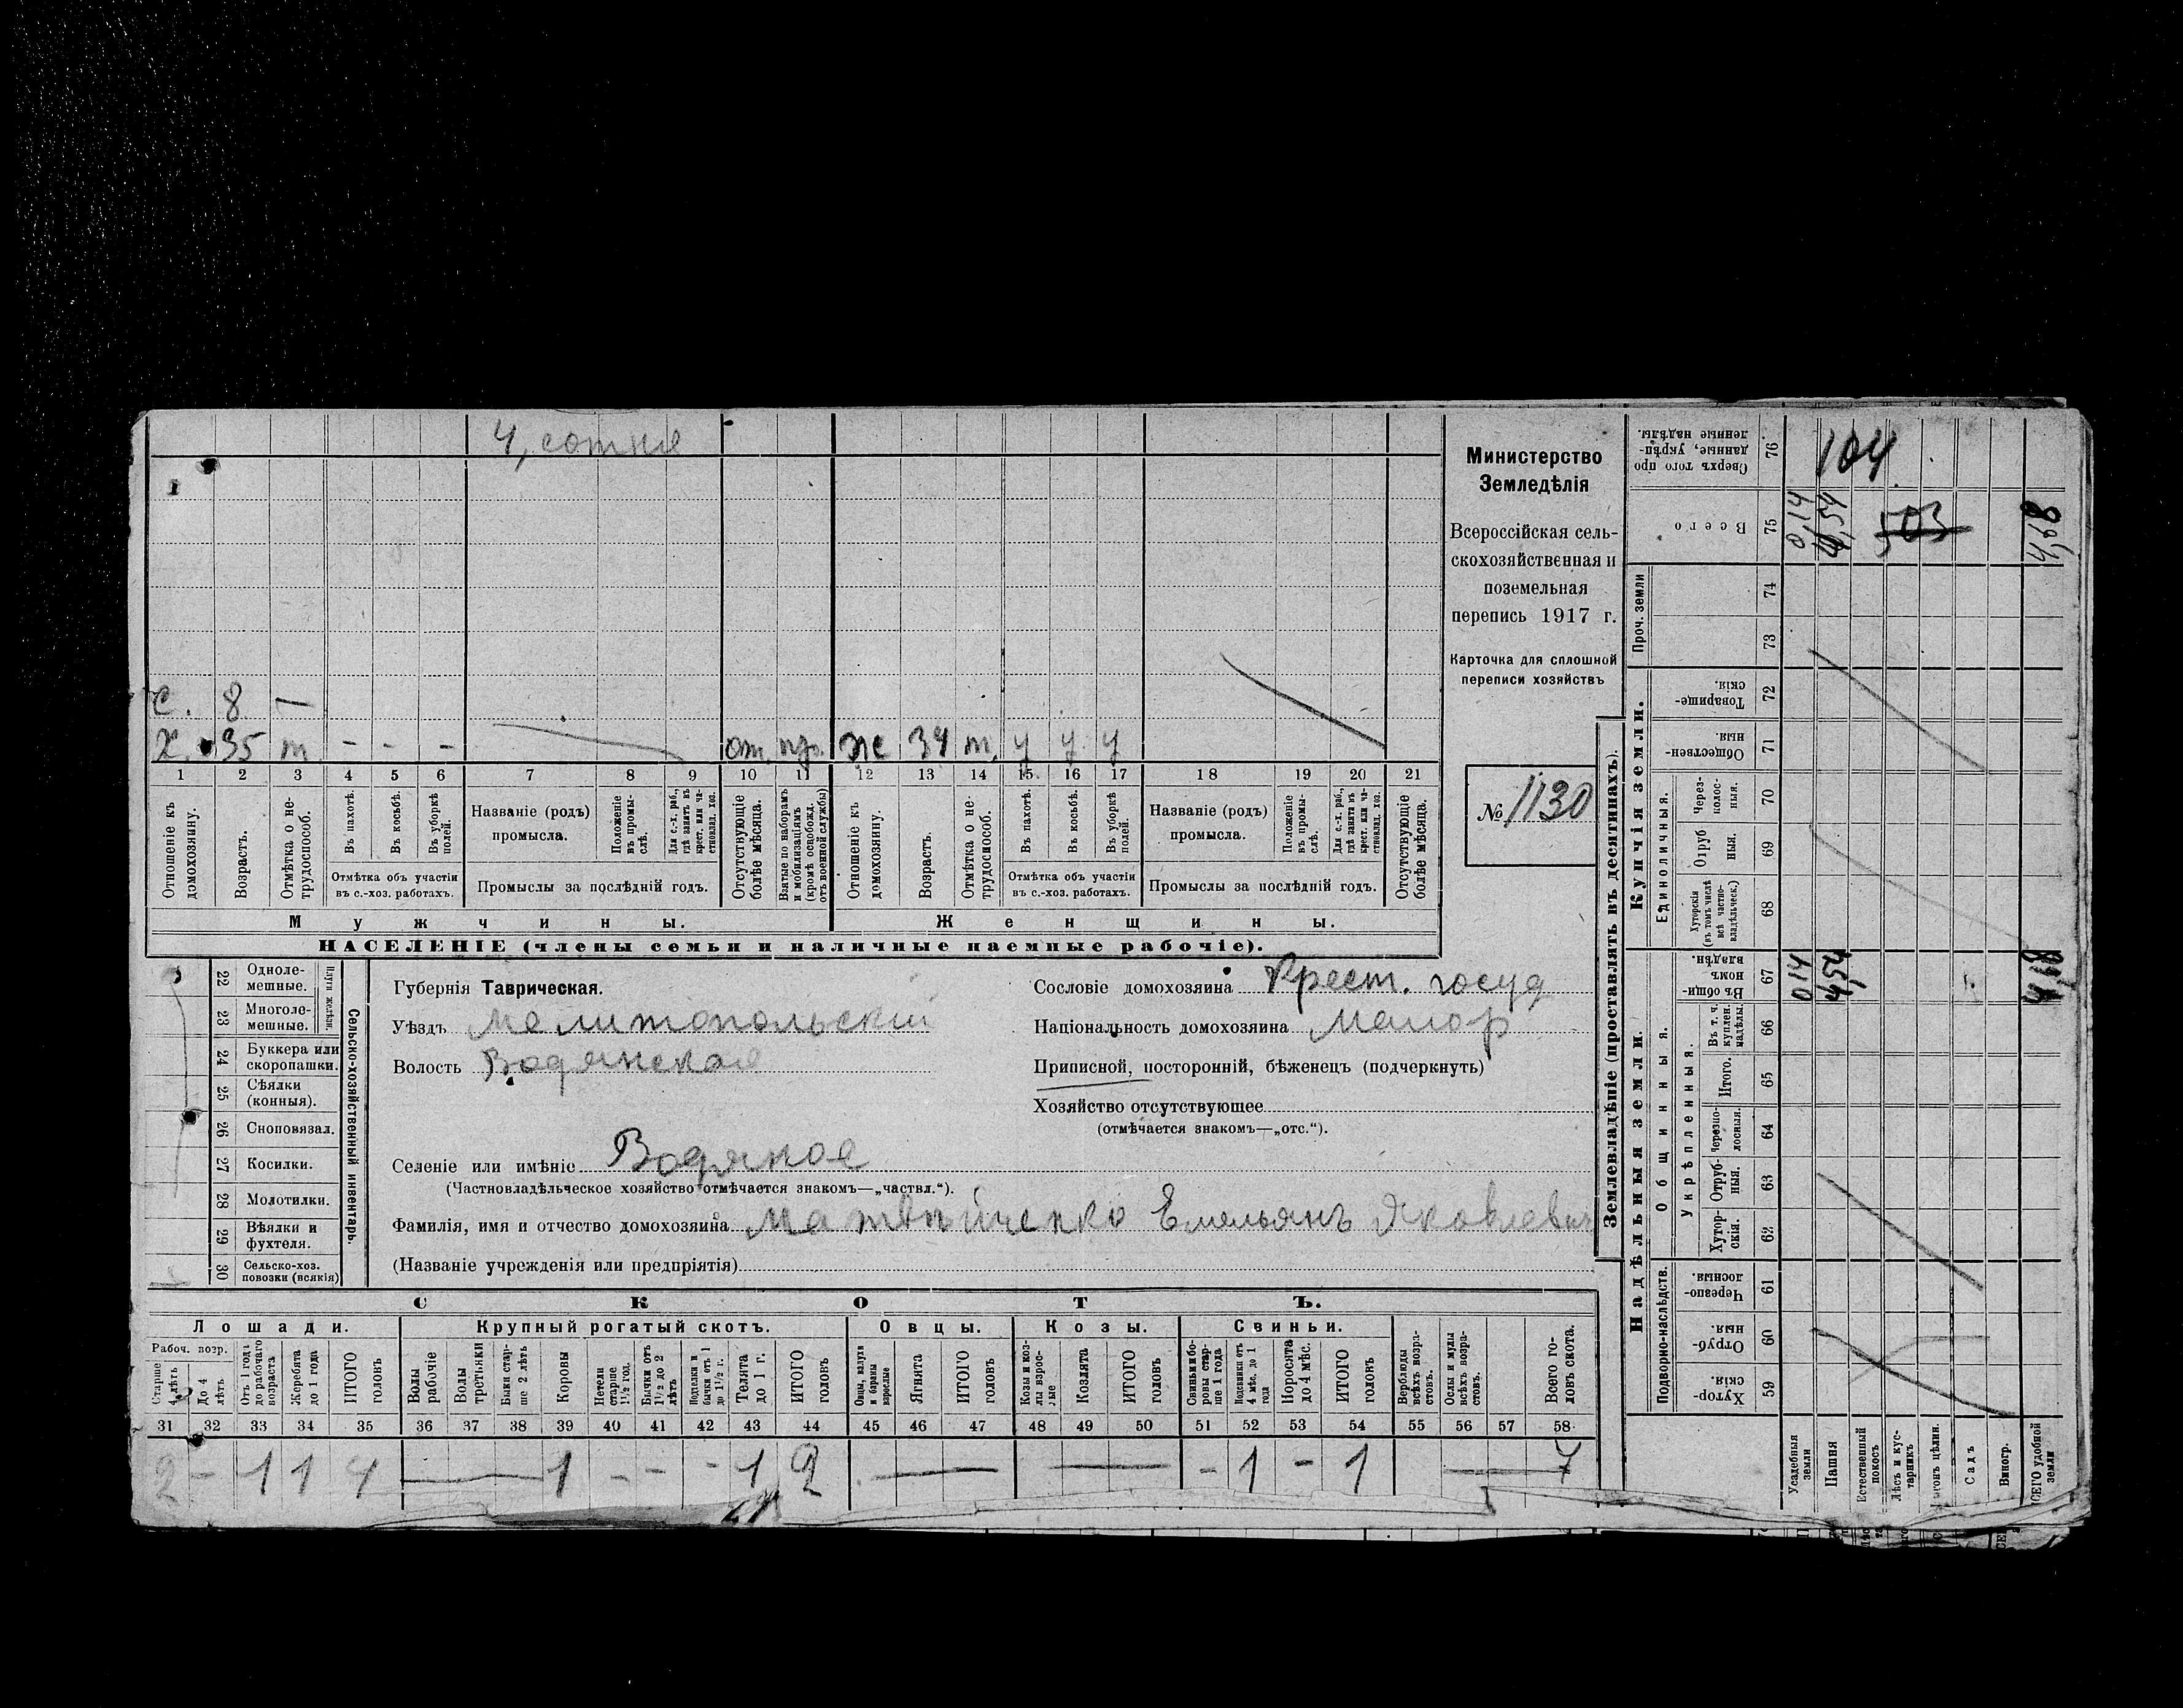 4, сотне
с. 8 —
х. 35 т. - - - от. пр. ж 34 т. у у у
1 2 3 4 5 6 7 8 9 10 11 12 13 14 15 16 17 18 19 20 21
Отношеніе къ домохозяину.
Возрастъ.
Отмѣтка о нетрудоспособ.
Въ пахотѣ.
Въ косьбѣ.
Въ уборкѣ полей.
Отмѣтка объ участіи
въ с.-хоз. работахъ.
Названіе (родъ)
промысла.
Положеніе въ промыслѣ.
Для с.-х. раб., гдѣ занятъ въ крест. или частновлад. хоз.
Промыслы за послѣдній годъ.
Отсутствующіе болѣе мѣсяца.
Взятые по наборамъ и мобилизаціямъ (кромѣ освобожд. отъ военной службы)
Отношеніе къ домохозяину.
Возрастъ.
Отмѣтка о нетрудоспособ.
Въ пахотѣ.
Въ косьбѣ.
Въ уборкѣ полей.
Отмѣтка объ участіи
въ с.-хоз. работахъ.
Названіе (родъ)
промысла.
Положеніе въ промыслѣ.
Для с.-х. раб., гдѣ занятъ въ крест. или частновлад. хоз.
Промыслы за послѣдній годъ.
Отсутствующіе болѣе мѣсяца.
Мужчины. Женщины.
НАСЕЛЕНІЕ (члены семьи и наличные наемные рабочіе).
Министерство
Земледѣлія
Всероссійская сель-
скохозяйственная и
поземельная
перепись 1917 г.
Карточка для сплошной
переписи хозяйствъ
№ 1130
22 Одноле-
мешные.
23 Многоле-
мешные.
Плуги желѣзн.
24 Буккера или
скоропашки.
25 Сѣялки
(конныя).
26 Сноповязал.
27 Косилки.
28 Молотилки.
29 Вѣялки и
фухтеля.
30 Сельско-хоз.
повозки (всякія)
Сельско-хозяйственный инвентарь.
Губернія Таврическая.
Уѣздъ Мелитопольскій
Волость Водянская
Селеніе или имѣніе Водяное
(Частновладѣльческое хозяйство отмѣчается знакомъ—„частвл.“).
Фамилія, имя и отчество домохозяина Матвѣйченко Емельянъ Яковлевич
(Названіе учрежденія или предпріятія)
Сословіе домохозяина Крест. госуд
Національность домохозяина Малор
Приписной, посторонній, бѣженецъ (подчеркнуть)
Хозяйство отсутствующее
(отмѣчается знакомъ—„отс.“).
СКОТЪ.
Лошади. Крупный рогатый скотъ. Овцы. Козы. Свиньи.
Рабоч. возр.
Старше 4 лѣтъ
До 4 лѣтъ
Отъ 1 года до рабочаго возраста
Жеребята до 1 года
ИТОГО головъ
Волы рабочіе
Волы третьяки
Быки старше 2 лѣтъ
Коровы
Нетели старше 1½ год.
Бычки отъ 1½ до 2 лѣтъ
Подтелки и бычки отъ 1 до 1½ г.
Телята до 1 г.
ИТОГО головъ
Овцы, валухи и бараны взрослые
Ягнята
ИТОГО головъ
Козы и козлы взрослые
Козлята
ИТОГО головъ
Свиньи и боровы старше 1 года
Подсвинки отъ 4 мѣс. до 1 года
Поросята до 4 мѣс.
ИТОГО головъ
Верблюды всѣхъ возрастовъ.
Ослы и мулы всѣхъ возрастовъ.
Всего головъ скота.
31 32 33 34 35 36 37 38 39 40 41 42 43 44 45 46 47 48 49 50 51 52 53 54 55 56 57 58
2 - 1 1 4 — 1 - - - 1 2 — — - 1 - 1 — 7
Землевладѣніе (проставлять въ десятинахъ).
Надѣльныя земли. Купчія земли.
Проч. земли
Подворно-наслѣдств.
Общинныя.
Укрѣпленныя.
Единоличныя.
76 Сверхъ того проданные, укрѣпленные надѣлы.
104
75 Всего
0,14 4,54 503 4,68
74
73
72 Товарищескія.
71 Общественныя
70 Черезполосныя.
69 Отрубныя.
68 Хуторскія (въ томъ числѣ всѣ частновладѣльческ.)
67 Въ общинномъ владѣн.
0,14 4,54 4,68
66 Въ т. ч. куплен. надѣлы
65 Итого.
64 Черезполосныя.
63 Отрубныя.
62 Хуторскія.
61 Черезполосныя.
60 Отрубныя.
59 Хуторскія.
Усадебныя земли
Пашня
Естественный покосъ
Лѣсъ и кустарникъ
Садъ
Виногр.